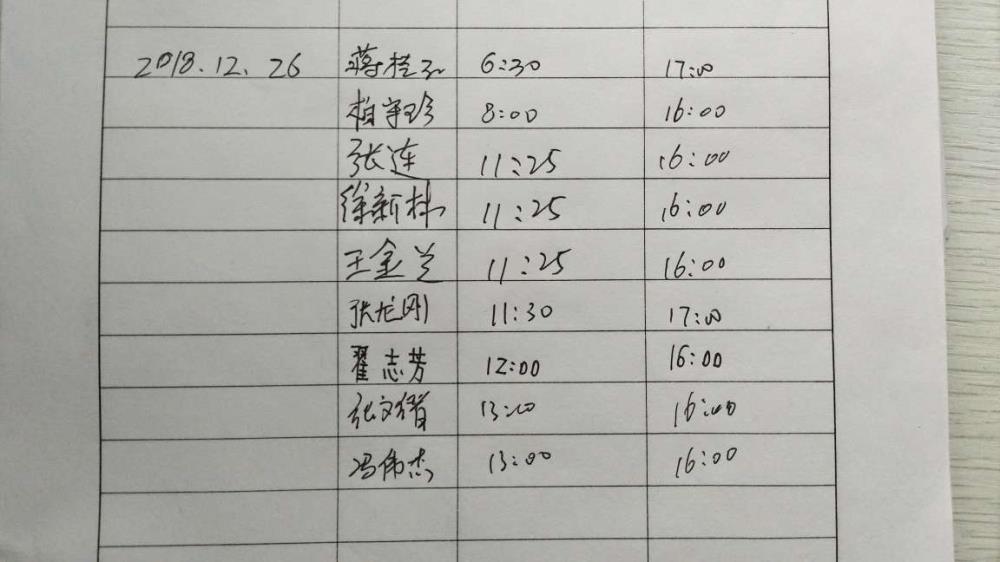 2018.12.26 蒋桂 6:30 17:00
柏宇珍 8:00 16:00
张连 11:25 16:00
徐新林 11:25 16:00
王金兰 11:25 16:00
张龙刚 11:30 17:00
翟志芳 12:00 16:00
张文 13:00 16:00
冯伟杰 13:00 16:00